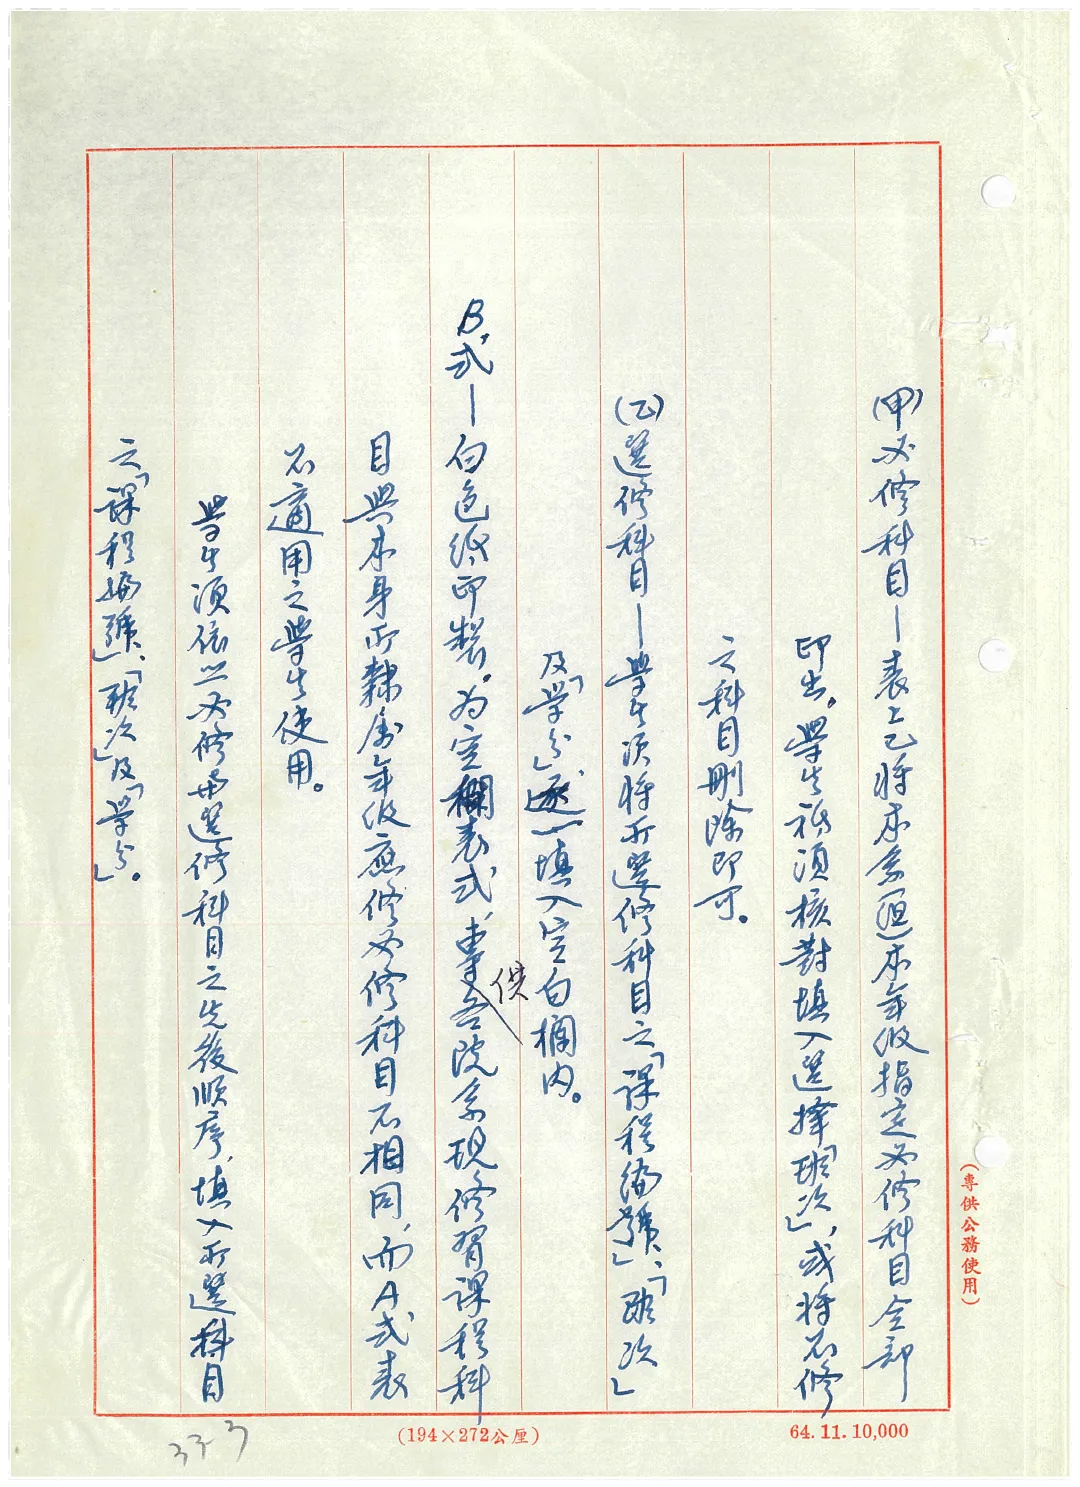 (甲)必修科目—表上已將本系(組)本年級指定必修科目全部
印出。學生祇須核對填入選擇「班次」,或將不修
之科目刪除即可。
(乙)選修科目—學生須將所選修科目之「課程編號」、「班次」
及「學分」逐一填入空白欄內。
B式—白色紙印製。為空欄表式,專供各院系現修習課程科
目與本身所隸屬年級應修必修科目不相同,而A式表
不適用之學生使用。
學生須依照必修與選修科目之先後順序,填入所選科目
之「課程編號」、「班次」及「學分」。
(專供公務使用)
(194×272公厘)
64.11.10,000